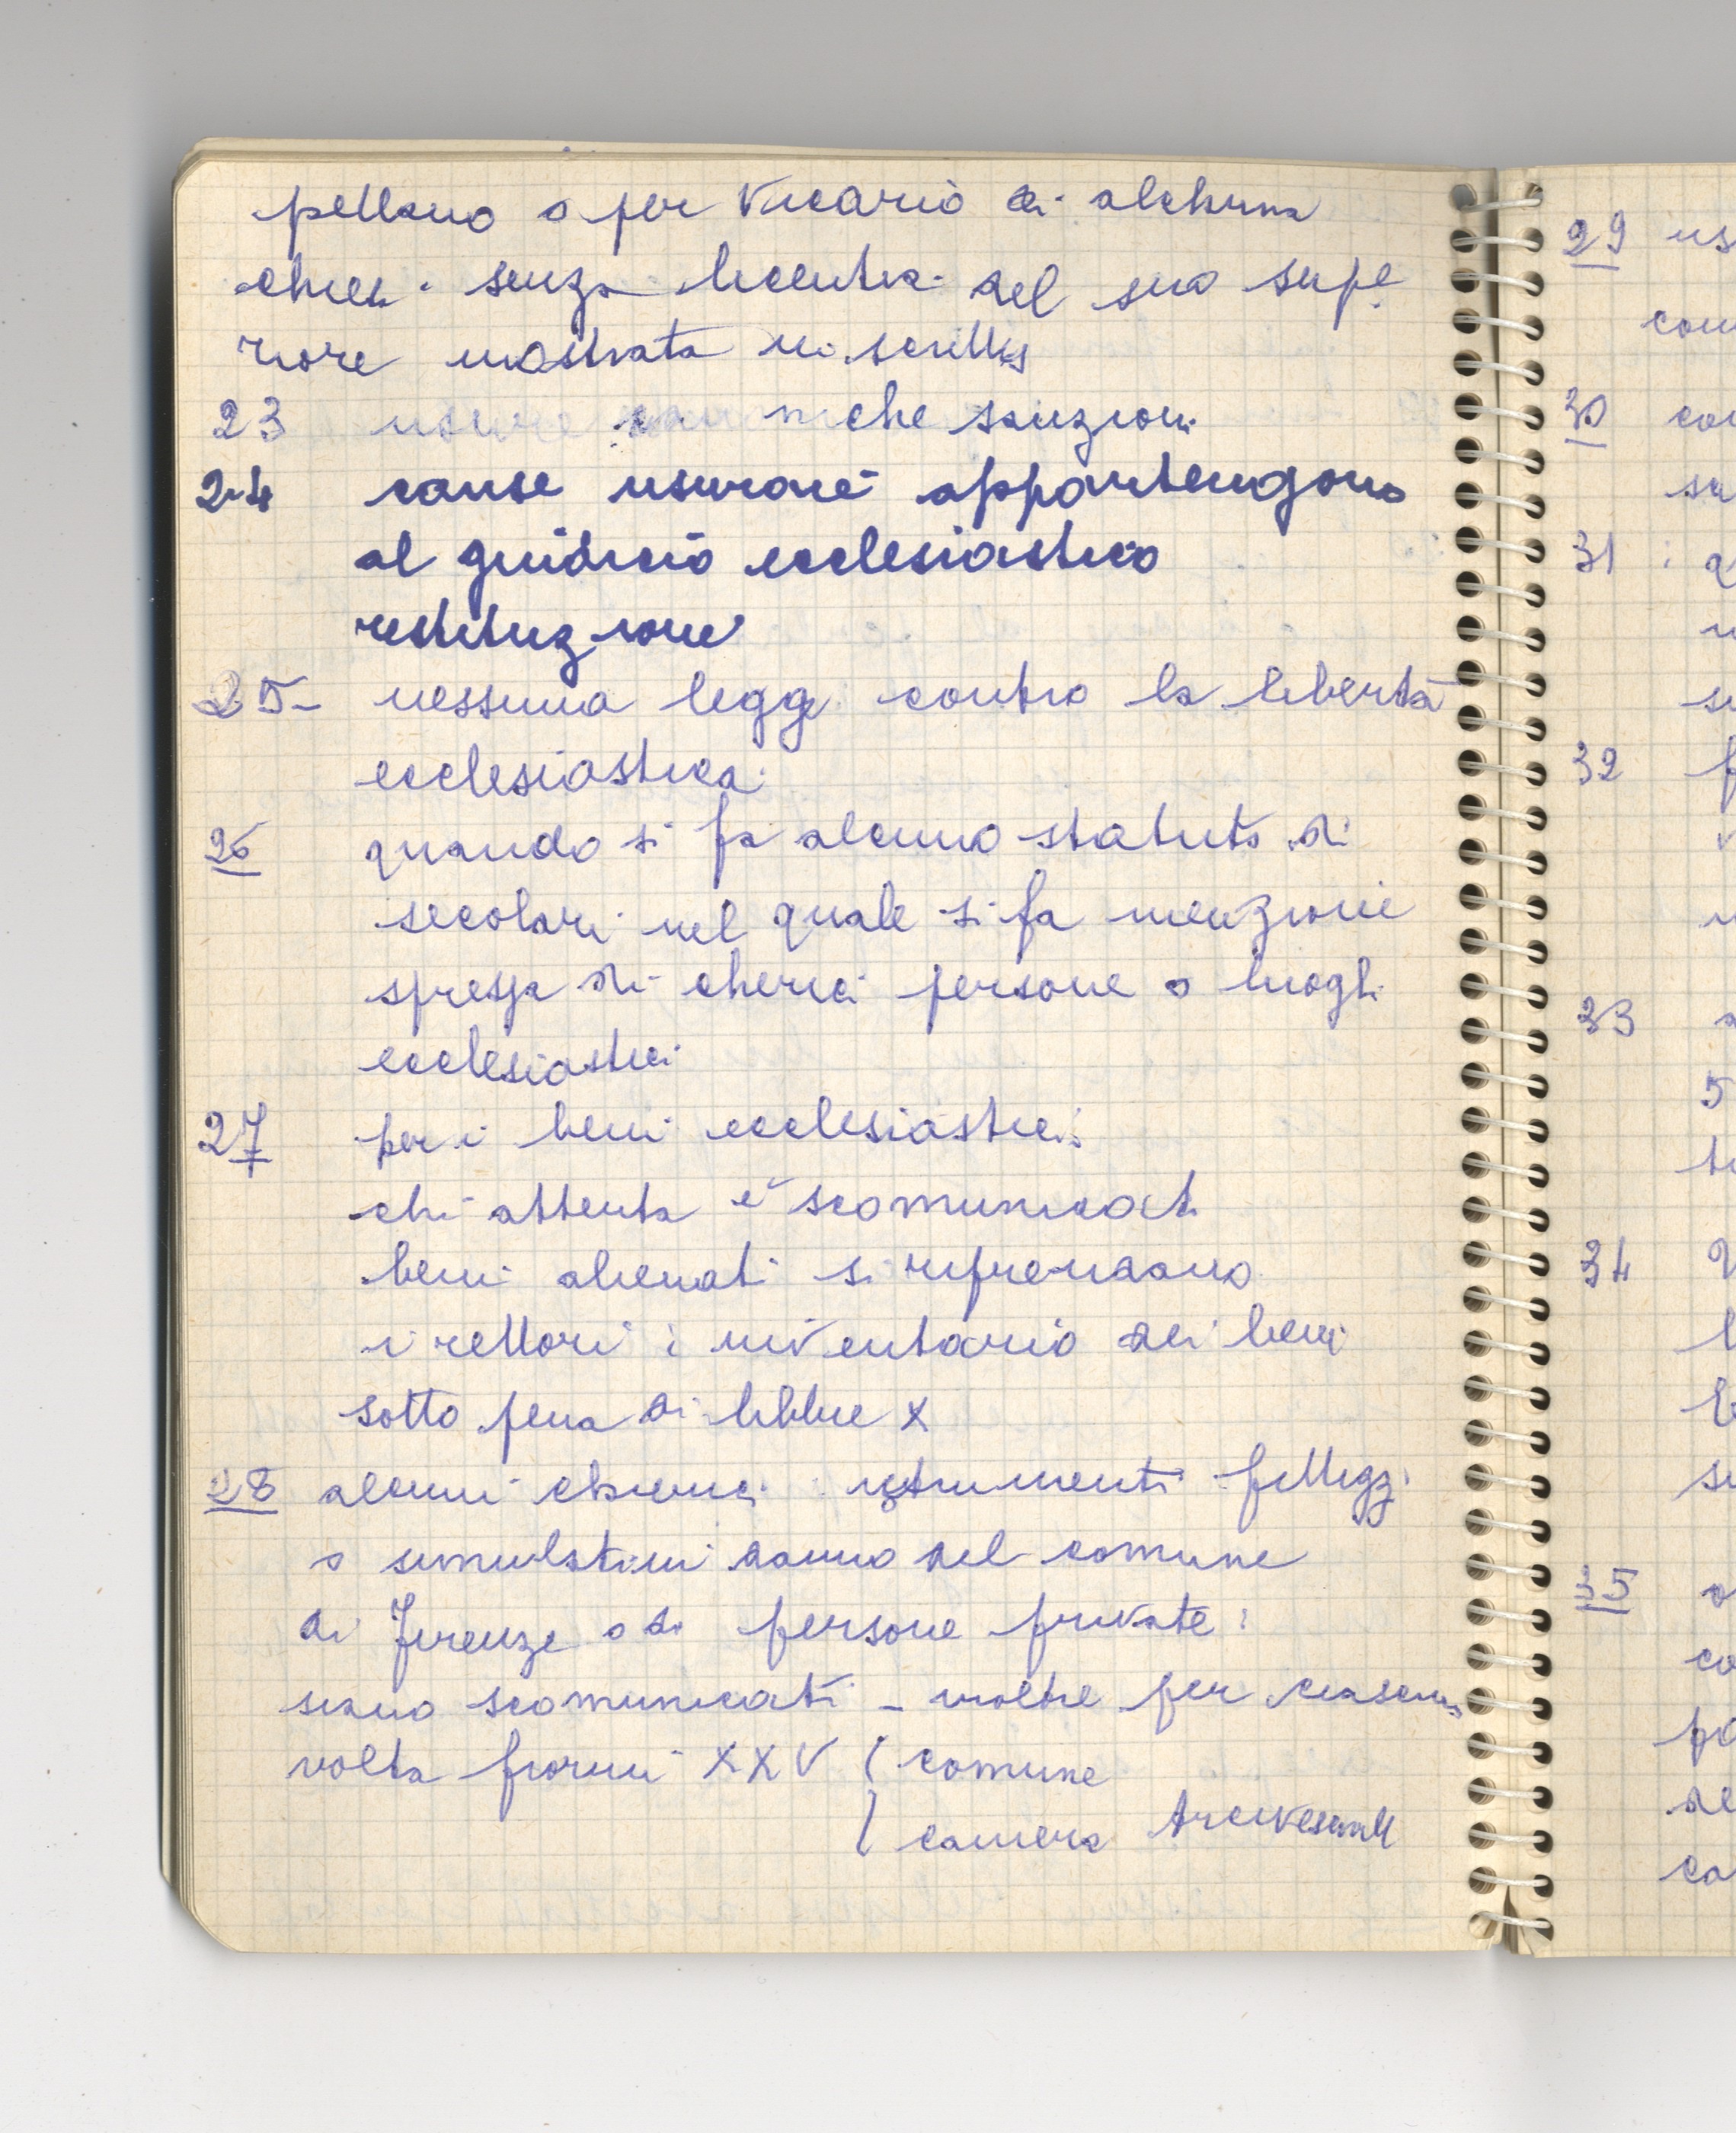 pellano o per vicario di alchuna
chiesa senza licentia del suo supe
riore mostrata in scritto
23 usure che sanzioni
24 cause usuraie appartengono
al giudicio ecclesiastico
restituzione
25 - nessuna legge contro la libertà
ecclesiastica
26 quando si fa alcuno statuto di
secolari nel quale si fa menzione
spressa di cherici persone o luoghi
ecclesiastici
27 per i beni ecclesiastici:
chi attenta è scomunicato
beni alienati si riprendano
i rettori : inventario dei beni
sotto pena di libbre X
28 alcuni cherici istrumenti fittizi
o simulati in danno del comune
di Firenze o di persone private :
siano scomunicati - inoltre per ciascuna
volta fiorini XXV ( comune
camera Arcivescovile
29
30
31
32
33
34
35